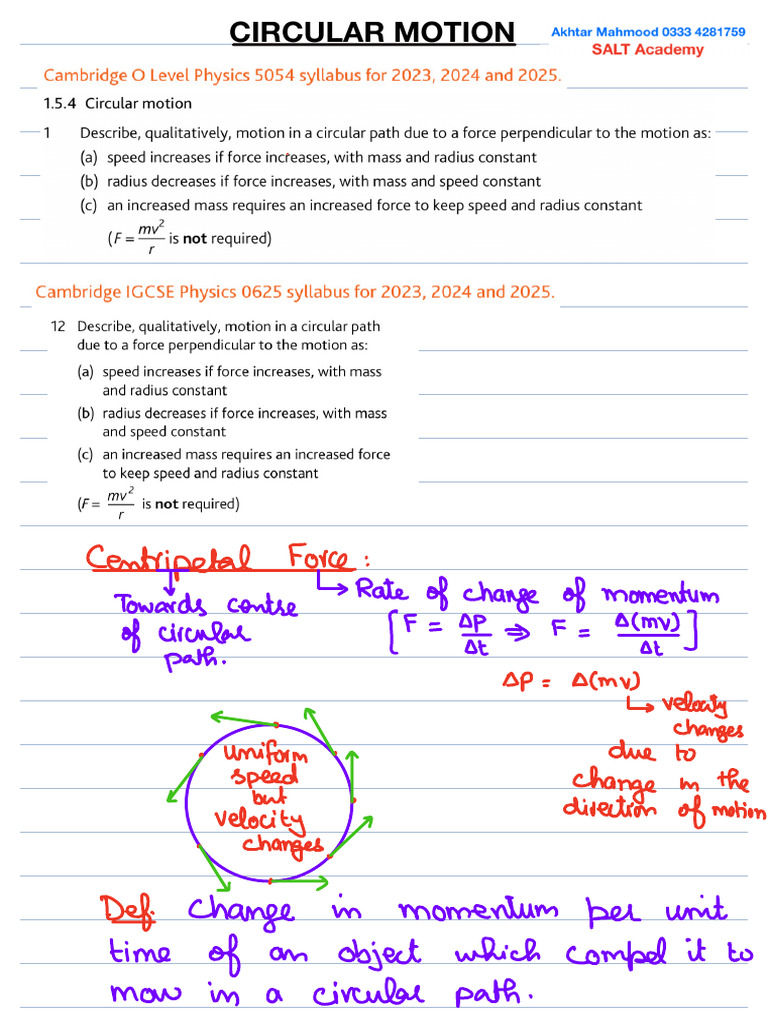 CIRCULAR MOTION
Akhtar Mahmood 0333 4281759
SALT Academy
Cambridge O Level Physics 5054 syllabus for 2023, 2024 and 2025.
1.5.4 Circular motion
1 Describe, qualitatively, motion in a circular path due to a force perpendicular to the motion as:
(a) speed increases if force increases, with mass and radius constant
(b) radius decreases if force increases, with mass and speed constant
(c) an increased mass requires an increased force to keep speed and radius constant
(F = mv²/r is not required)
Cambridge IGCSE Physics 0625 syllabus for 2023, 2024 and 2025.
12 Describe, qualitatively, motion in a circular path
due to a force perpendicular to the motion as:
(a) speed increases if force increases, with mass
and radius constant
(b) radius decreases if force increases, with mass
and speed constant
(c) an increased mass requires an increased force
to keep speed and radius constant
(F = mv²/r is not required)
Centripetal Force :
Towards centre
of circular
path.
Rate of change of momentum
[F = ΔP/Δt ⇒ F = Δ(mv)/Δt]
ΔP = Δ(mv)
velocity
changes
due to
change in the
direction of motion
uniform
speed
but
velocity
changes
Def. change in momentum per unit
time of an object which compel it to
move in a circular path.